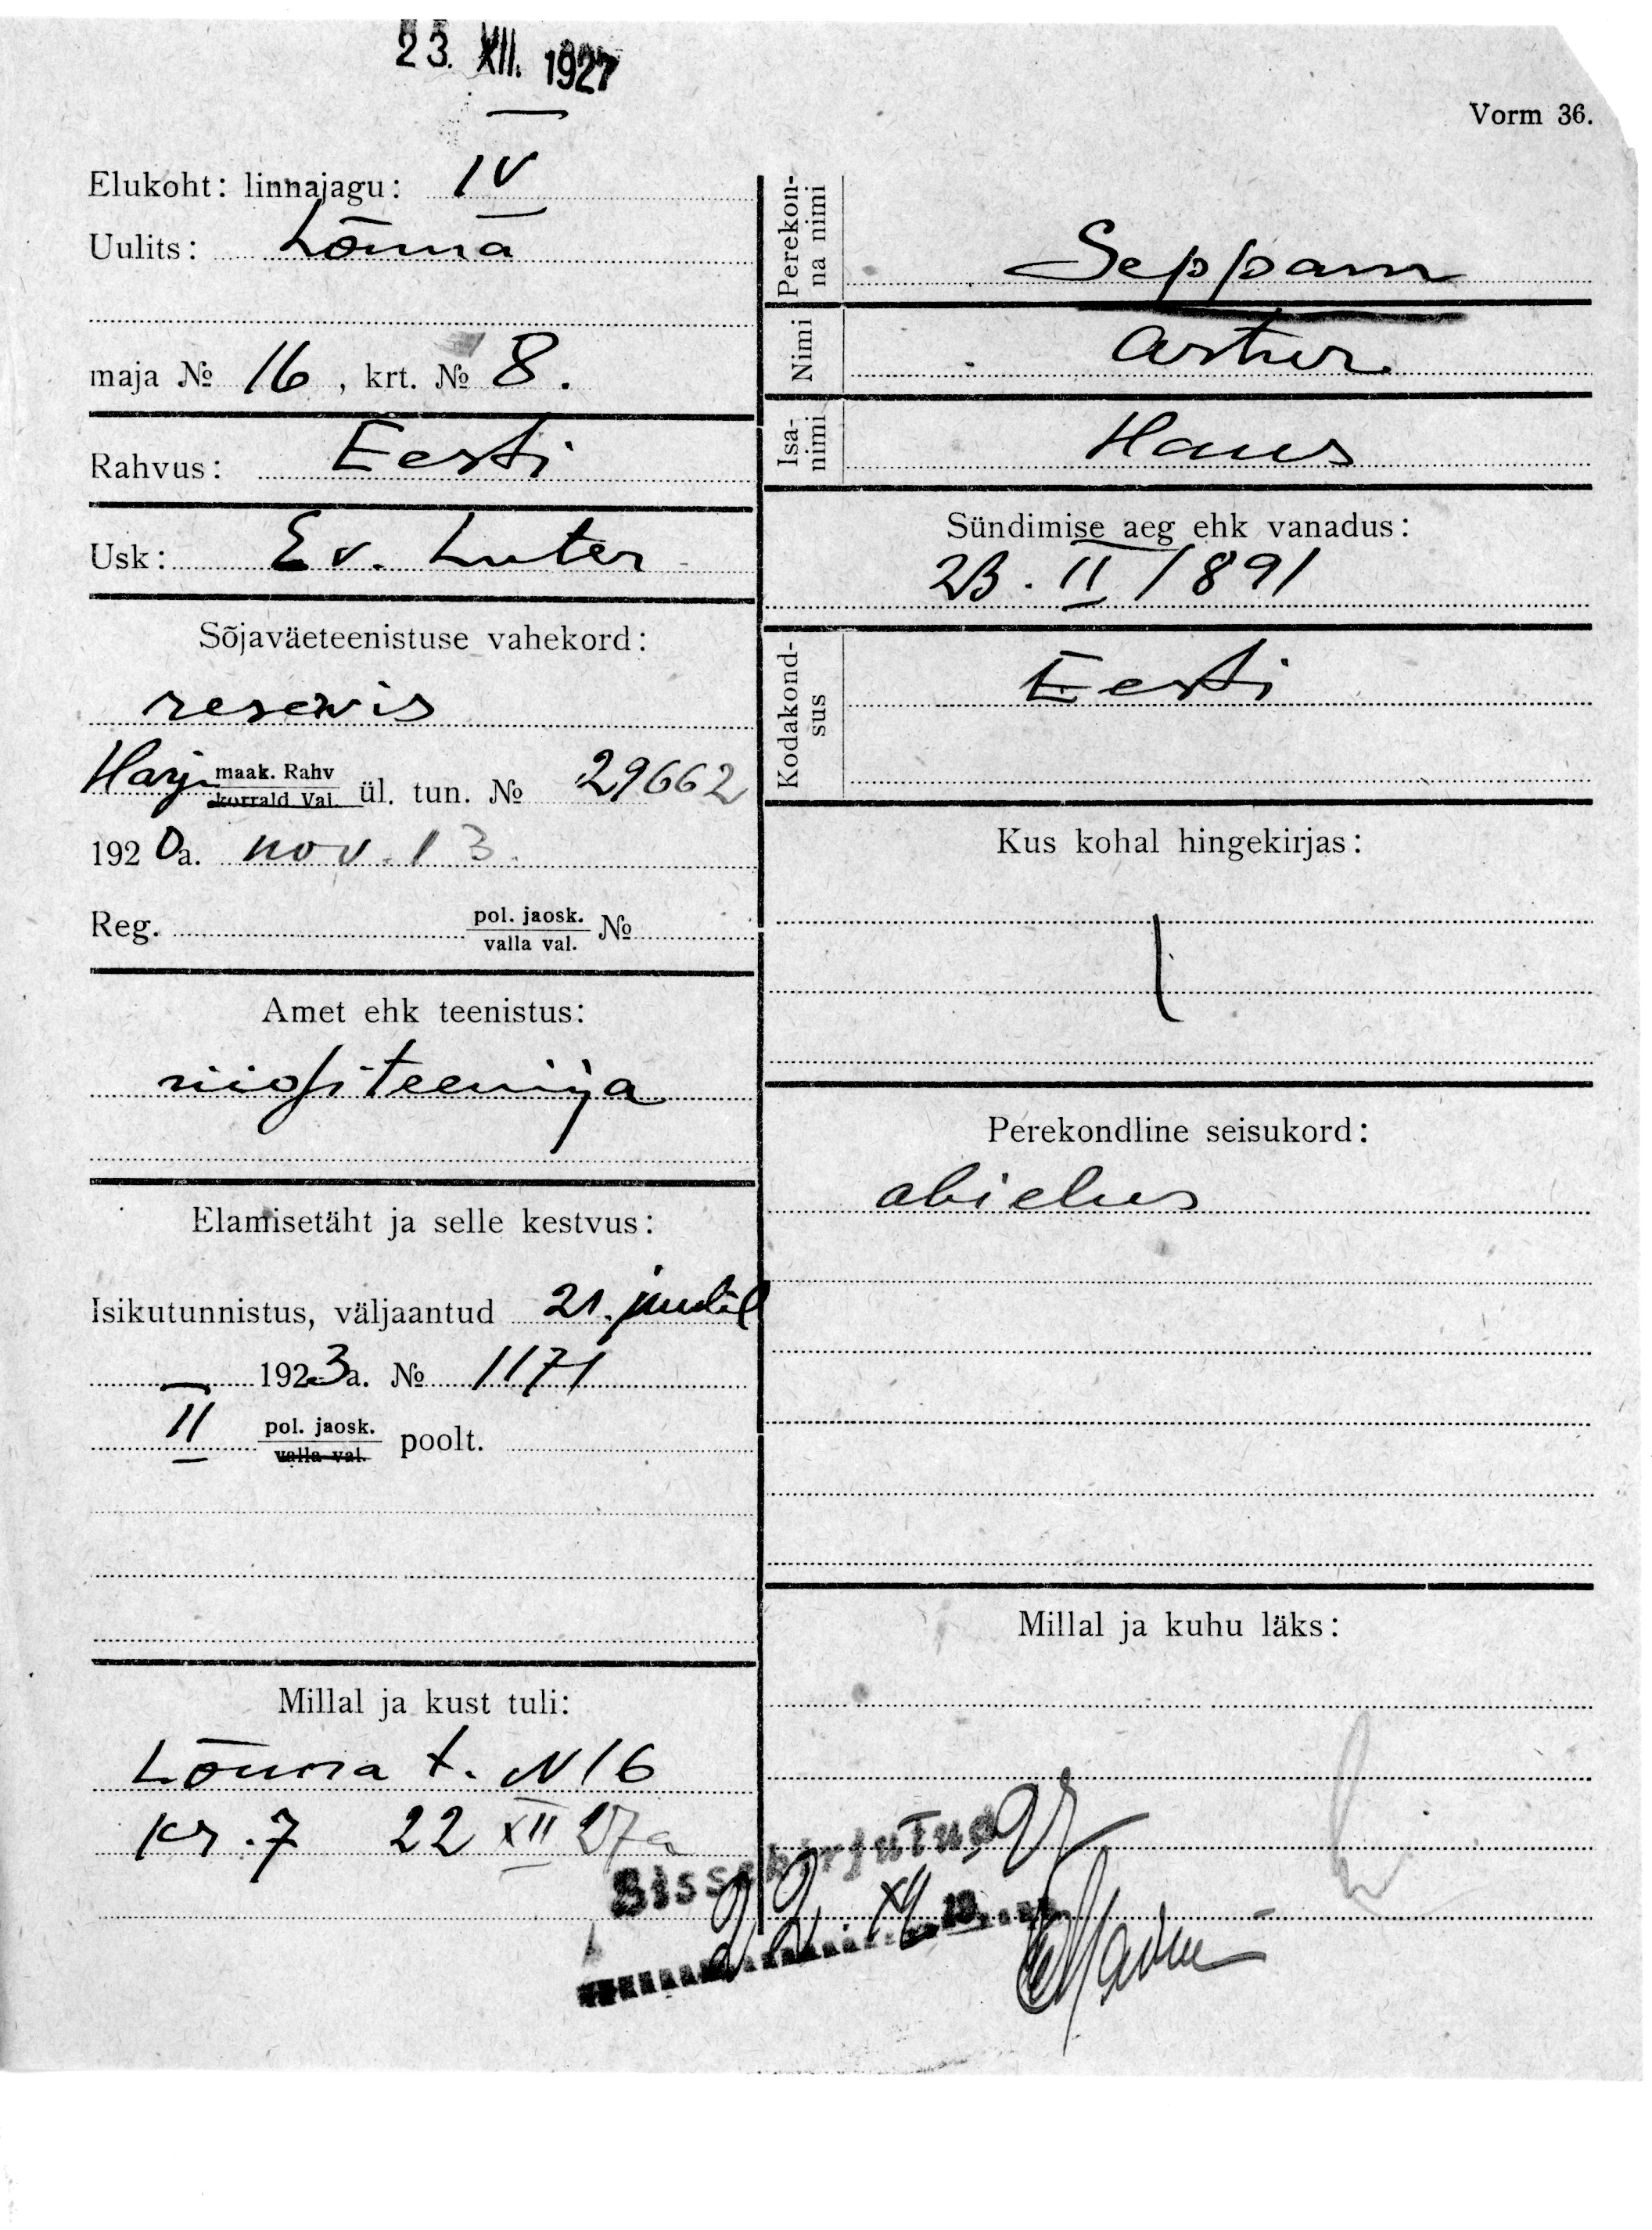 23. XII. 1927
Vorm 36.
Elukoht: linnajagu: IV
Uulits: Lõuna
maja № 16, krt. № 8.
Rahvus: Eesti
Usk: Ev. Luter
Sõjaväeteenistuse vahekord:
reservis
Harju maak. Rahv
korrald Val. ül. tun. № 29662
1920a. nov. 13.
Reg. pol. jaosk.
valla val. №
Amet ehk teenistus:
riigiteenija
Elamisetäht ja selle kestvus:
Isikutunnistus, väljaantud 21. juulil
1923a. № 1171
II pol. jaosk.
valla val. poolt.
Millal ja kust tuli:
Lõuna t. N 16
kr. 7 22 XII 27a
Perekon-
na nimi
Seppam
Nimi
Artur
Isa-
nimi
Hans
Sündimise aeg ehk vanadus:
23. II 1891
Kodakond-
sus
Eesti
Kus kohal hingekirjas:
Perekondline seisukord:
abielus
Millal ja kuhu läks:
Sissekirjutud
22. XII